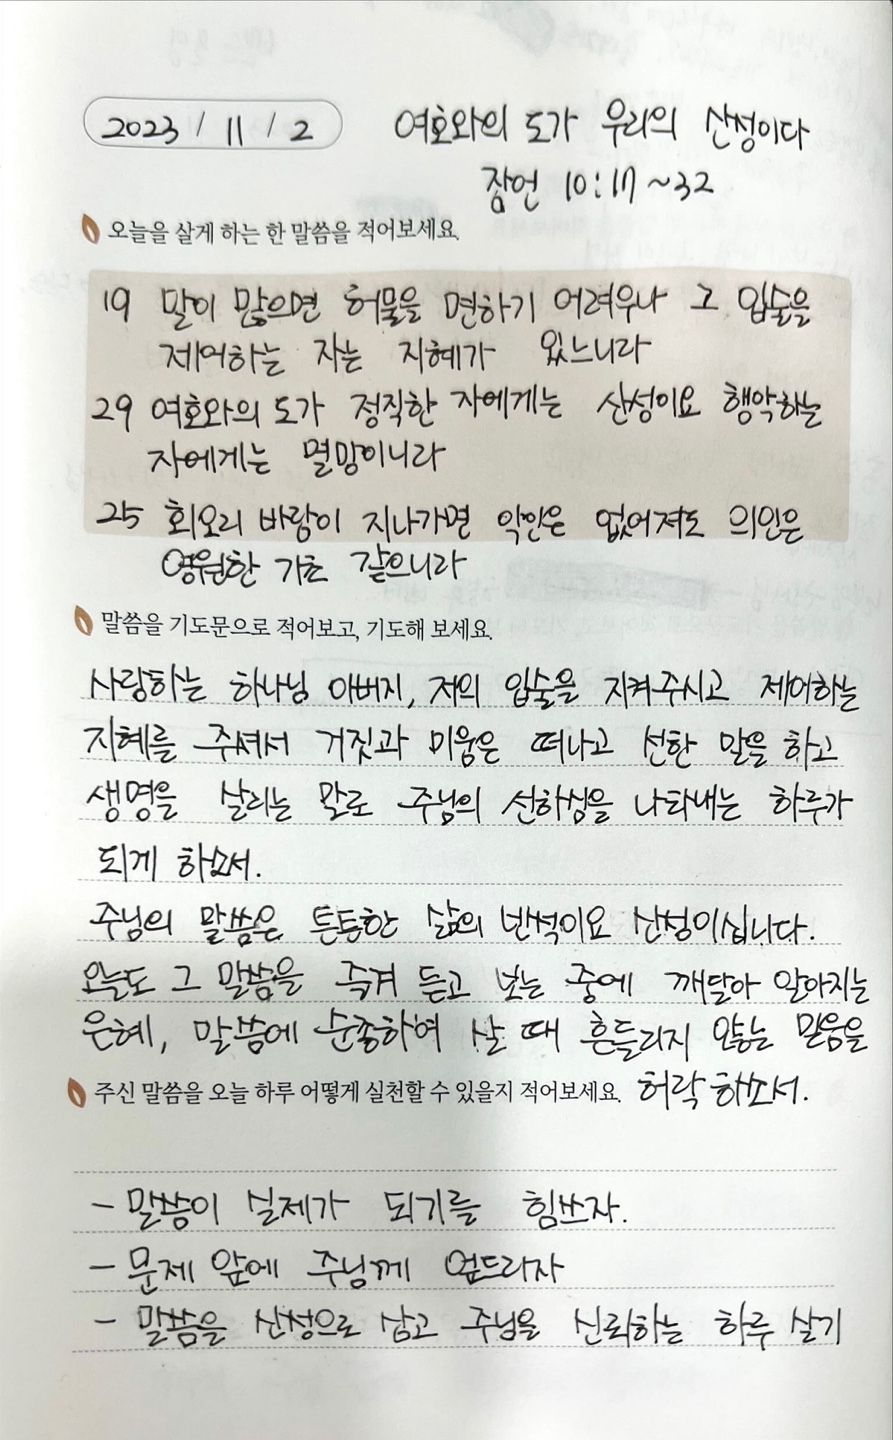 2023 / 11 / 2 여호와의 도가 우리의 산성이다
잠언 10:17~32
오늘을 살게 하는 한 말씀을 적어보세요.
19 말이 많으면 허물을 면하기 어려우나 그 입술을
제어하는 자는 지혜가 있느니라
29 여호와의 도가 정직한 자에게는 산성이요 행악하는
자에게는 멸망이니라
25 회오리 바람이 지나가면 악인은 없어져도 의인은
영원한 기초 같으니라
말씀을 기도문으로 적어보고, 기도해 보세요.
사랑하는 하나님 아버지, 저의 입술을 지켜주시고 제어하는
지혜를 주셔서 거짓과 미움은 떠나고 선한 말을 하고
생명을 살리는 말로 주님의 선하심을 나타내는 하루가
되게 하소서.
주님의 말씀은 튼튼한 삶의 반석이요 산성이십니다.
오늘도 그 말씀을 즉겨 듣고 보는 중에 깨달아 알아지는
은혜, 말씀에 순종하여 살 때 흔들리지 않는 믿음을
주신 말씀을 오늘 하루 어떻게 실천할 수 있을지 적어보세요. 허락하소서.
- 말씀이 실제가 되기를 힘쓰자.
- 문제 앞에 주님께 엎드리자
- 말씀을 산성으로 삼고 주님을 신뢰하는 하루 살기